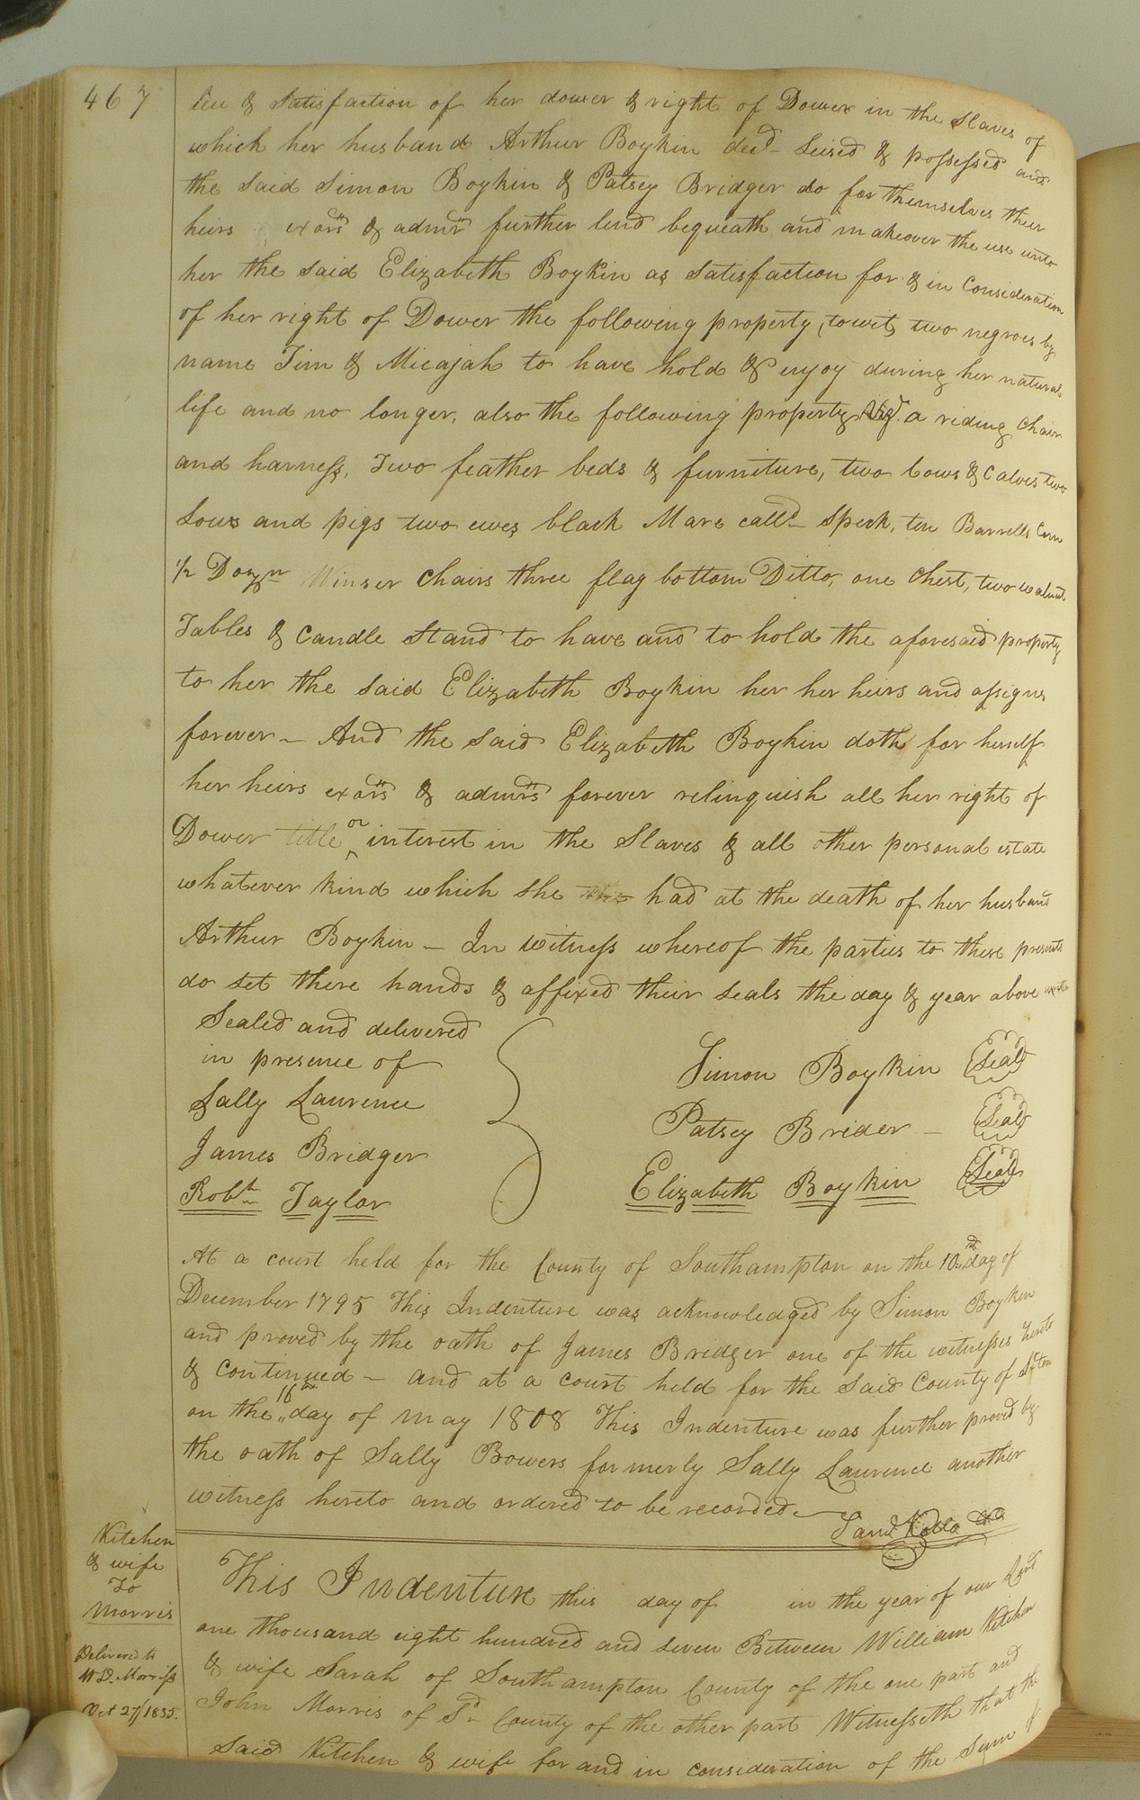 467
lieu & Satisfaction of her dower & right of Dower in the Slaves of
which her husband Arthur Boykin decd. Seised & possessed and
the said Simon Boykin & Patsey Bridger do for themselves their
heirs exors & admrs further lend bequeath and makeover the use unto
her the said Elizabeth Boykin as Satisfaction for & in Consideration
of her right of Dower the following property, towit, two negroes by
name Tim & Micajah to have hold & enjoy during her natural
life and no longer, also the following property Viz. a riding Chair
and harness, Two feather beds & furniture, two Cows & Calves two
Sows and pigs two ewes black Mare calld Speck, ten Barrells Corn
1/2 Dozn Winser Chairs three flag bottom Ditto, one Chest, two walnut
Tables & Candle Stand to have and to hold the aforesaid property
to her the said Elizabeth Boykin her her heirs and assigns
forever – And the said Elizabeth Boykin doth for herself
her heirs exors & admrs forever relinquish all her right of
Dower title or interest in the Slaves & all other personal estate
whatever kind which she had at the death of her husband
Arthur Boykin – In witness whereof the parties to these presents
do set there hands & affixed their seals the day & year above
Sealed and delivered
in presence of
Sally Laurence
James Bridger
Robt Taylor
Simon Boykin Seal
Patsey Brider – Seal
Elizabeth Boykin Seal
At a court held for the County of Southampton on the day of
December 1795 This Indenture was acknowledged by Simon Boykin
and proved by the oath of James Bridger one of the witnesses hereto
& Continued – and at a court held for the said County of Sthton
on the 16th day of May 1808 This Indenture was further proved by
the oath of Sally Bowers formerly Sally Laurence another
witness hereto and ordered to be recorded
Saml Kello CC
Kitchen
& wife
To
Morris
Delivered to
W D. Morriss
Oct 27/1835.
This Indenture this day of in the year of our Lord
one thousand eight hundred and seven Between William Kitchen
& wife Sarah of Southampton County of the one part and
John Morris of Sd County of the other part Witnesseth that the
said Kitchen & wife for and in consideration of the Sum of